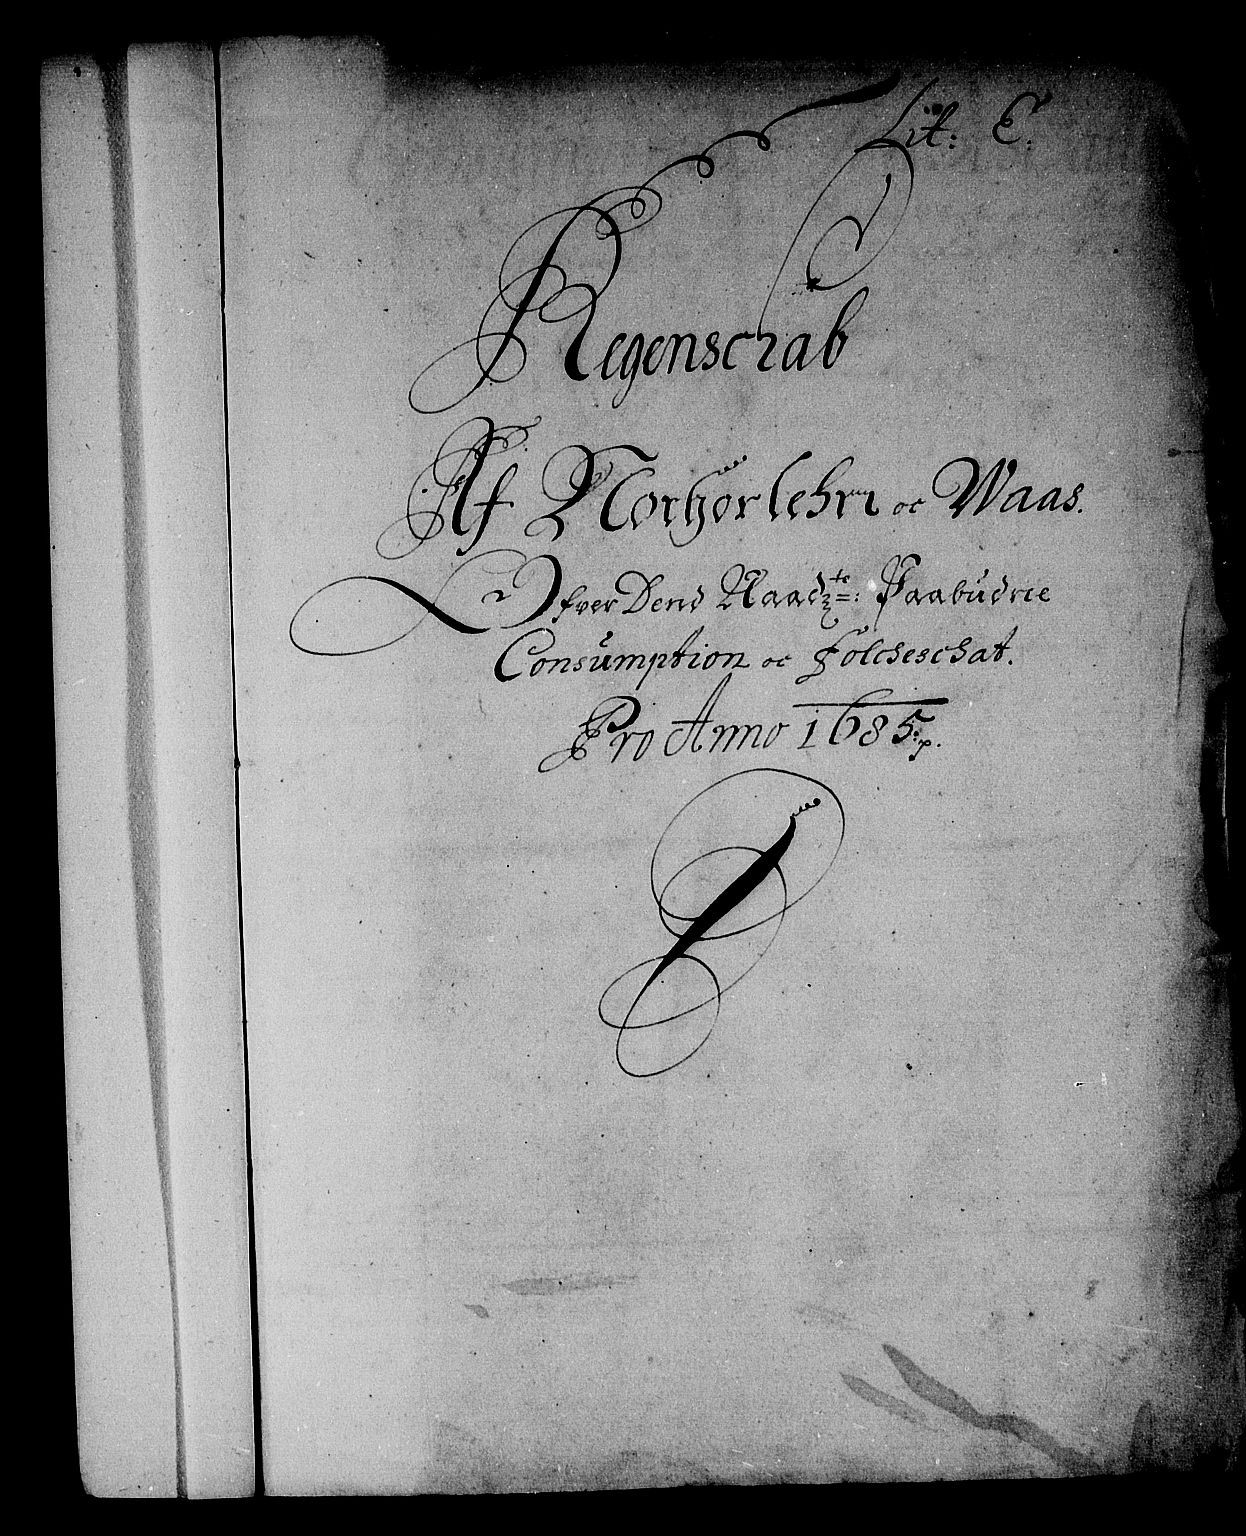 Lit: E.
Regenschab
Af Norhorlehn oc Waas.
Ofver Dend Naadte: Paabüdne
Consümption oc Folcheschat.
Pro Anno 1685.